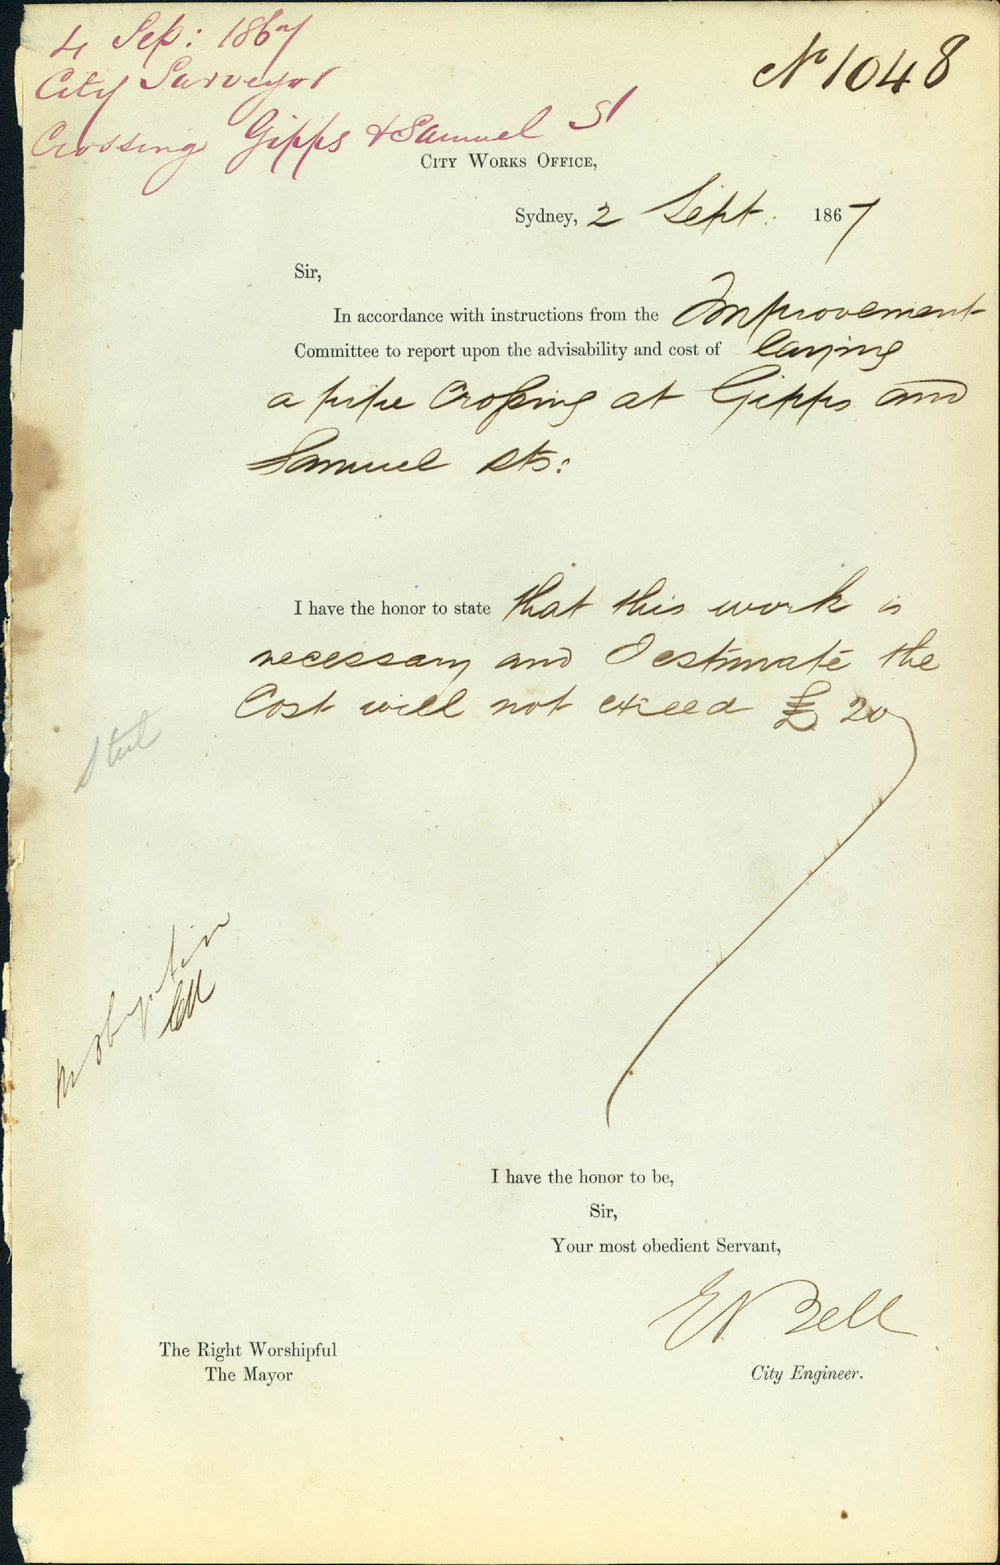 4 Sep: 1867
City Surveyor
Crossing Gipps & Samuel St
No 1048
City Works Office,
Sydney, 2 Sept: 1867
Sir,
In accordance with instructions from the Improvement
Committee to report upon the advisability and cost of laying
a pipe Crossing at Gipps and
Samuel Sts:
I have the honor to state that this work is
necessary and I estimate the
Cost will not exceed £20
no objection
I have the honor to be,
Sir,
Your most obedient Servant,
E Bell
The Right Worshipful
The Mayor
City Engineer.